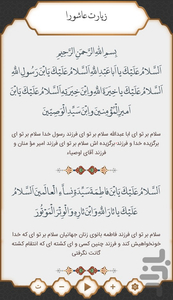 زیارت عاشورا
بِسْمِ اللهِ الرَّحْمنِ الرَّحیمِ
اَلسَّلامُ عَلَیْکَ یا اَبا عَبْدِاللهِ اَلسَّلامُ عَلَیْکَ یَابْنَ رَسُولِ اللهِ
اَلسَّلامُ عَلَیْکَ یا خِیَرَةَ اللهِ وَابْنَ خِیَرَتِهِ اَلسَّلامُ عَلَیْکَ یَابْنَ
اَمیرِالْمُؤْمِنینَ وَابْنَ سَیِّدِ الْوَصِیّینَ
سلام بر تو ای ابا عبدالله سلام بر تو ای فرزند رسول خدا سلام بر تو ای
برگزیده خدا و فرزند برگزیده اش سلام بر تو ای فرزند امیر مؤ منان و
فرزند آقای اوصیاء
اَلسَّلامُ عَلَیْکَ یَابْنَ فاطِمَةَ سَیِّدَةِ نِساَّءِ الْعالَمینَ اَلسَّلامُ
عَلَیْکَ یا ثارَ اللهِ وَابْنَ ثارِهِ وَالْوِتْرَ الْمَوْتُورَ
سلام بر تو ای فرزند فاطمه بانوی زنان جهانیان سلام بر تو ای که خدا
خونخواهیش کند و فرزند چنین کسی و ای کشته ای که انتقام کشته
گانت نگرفتی
بازار